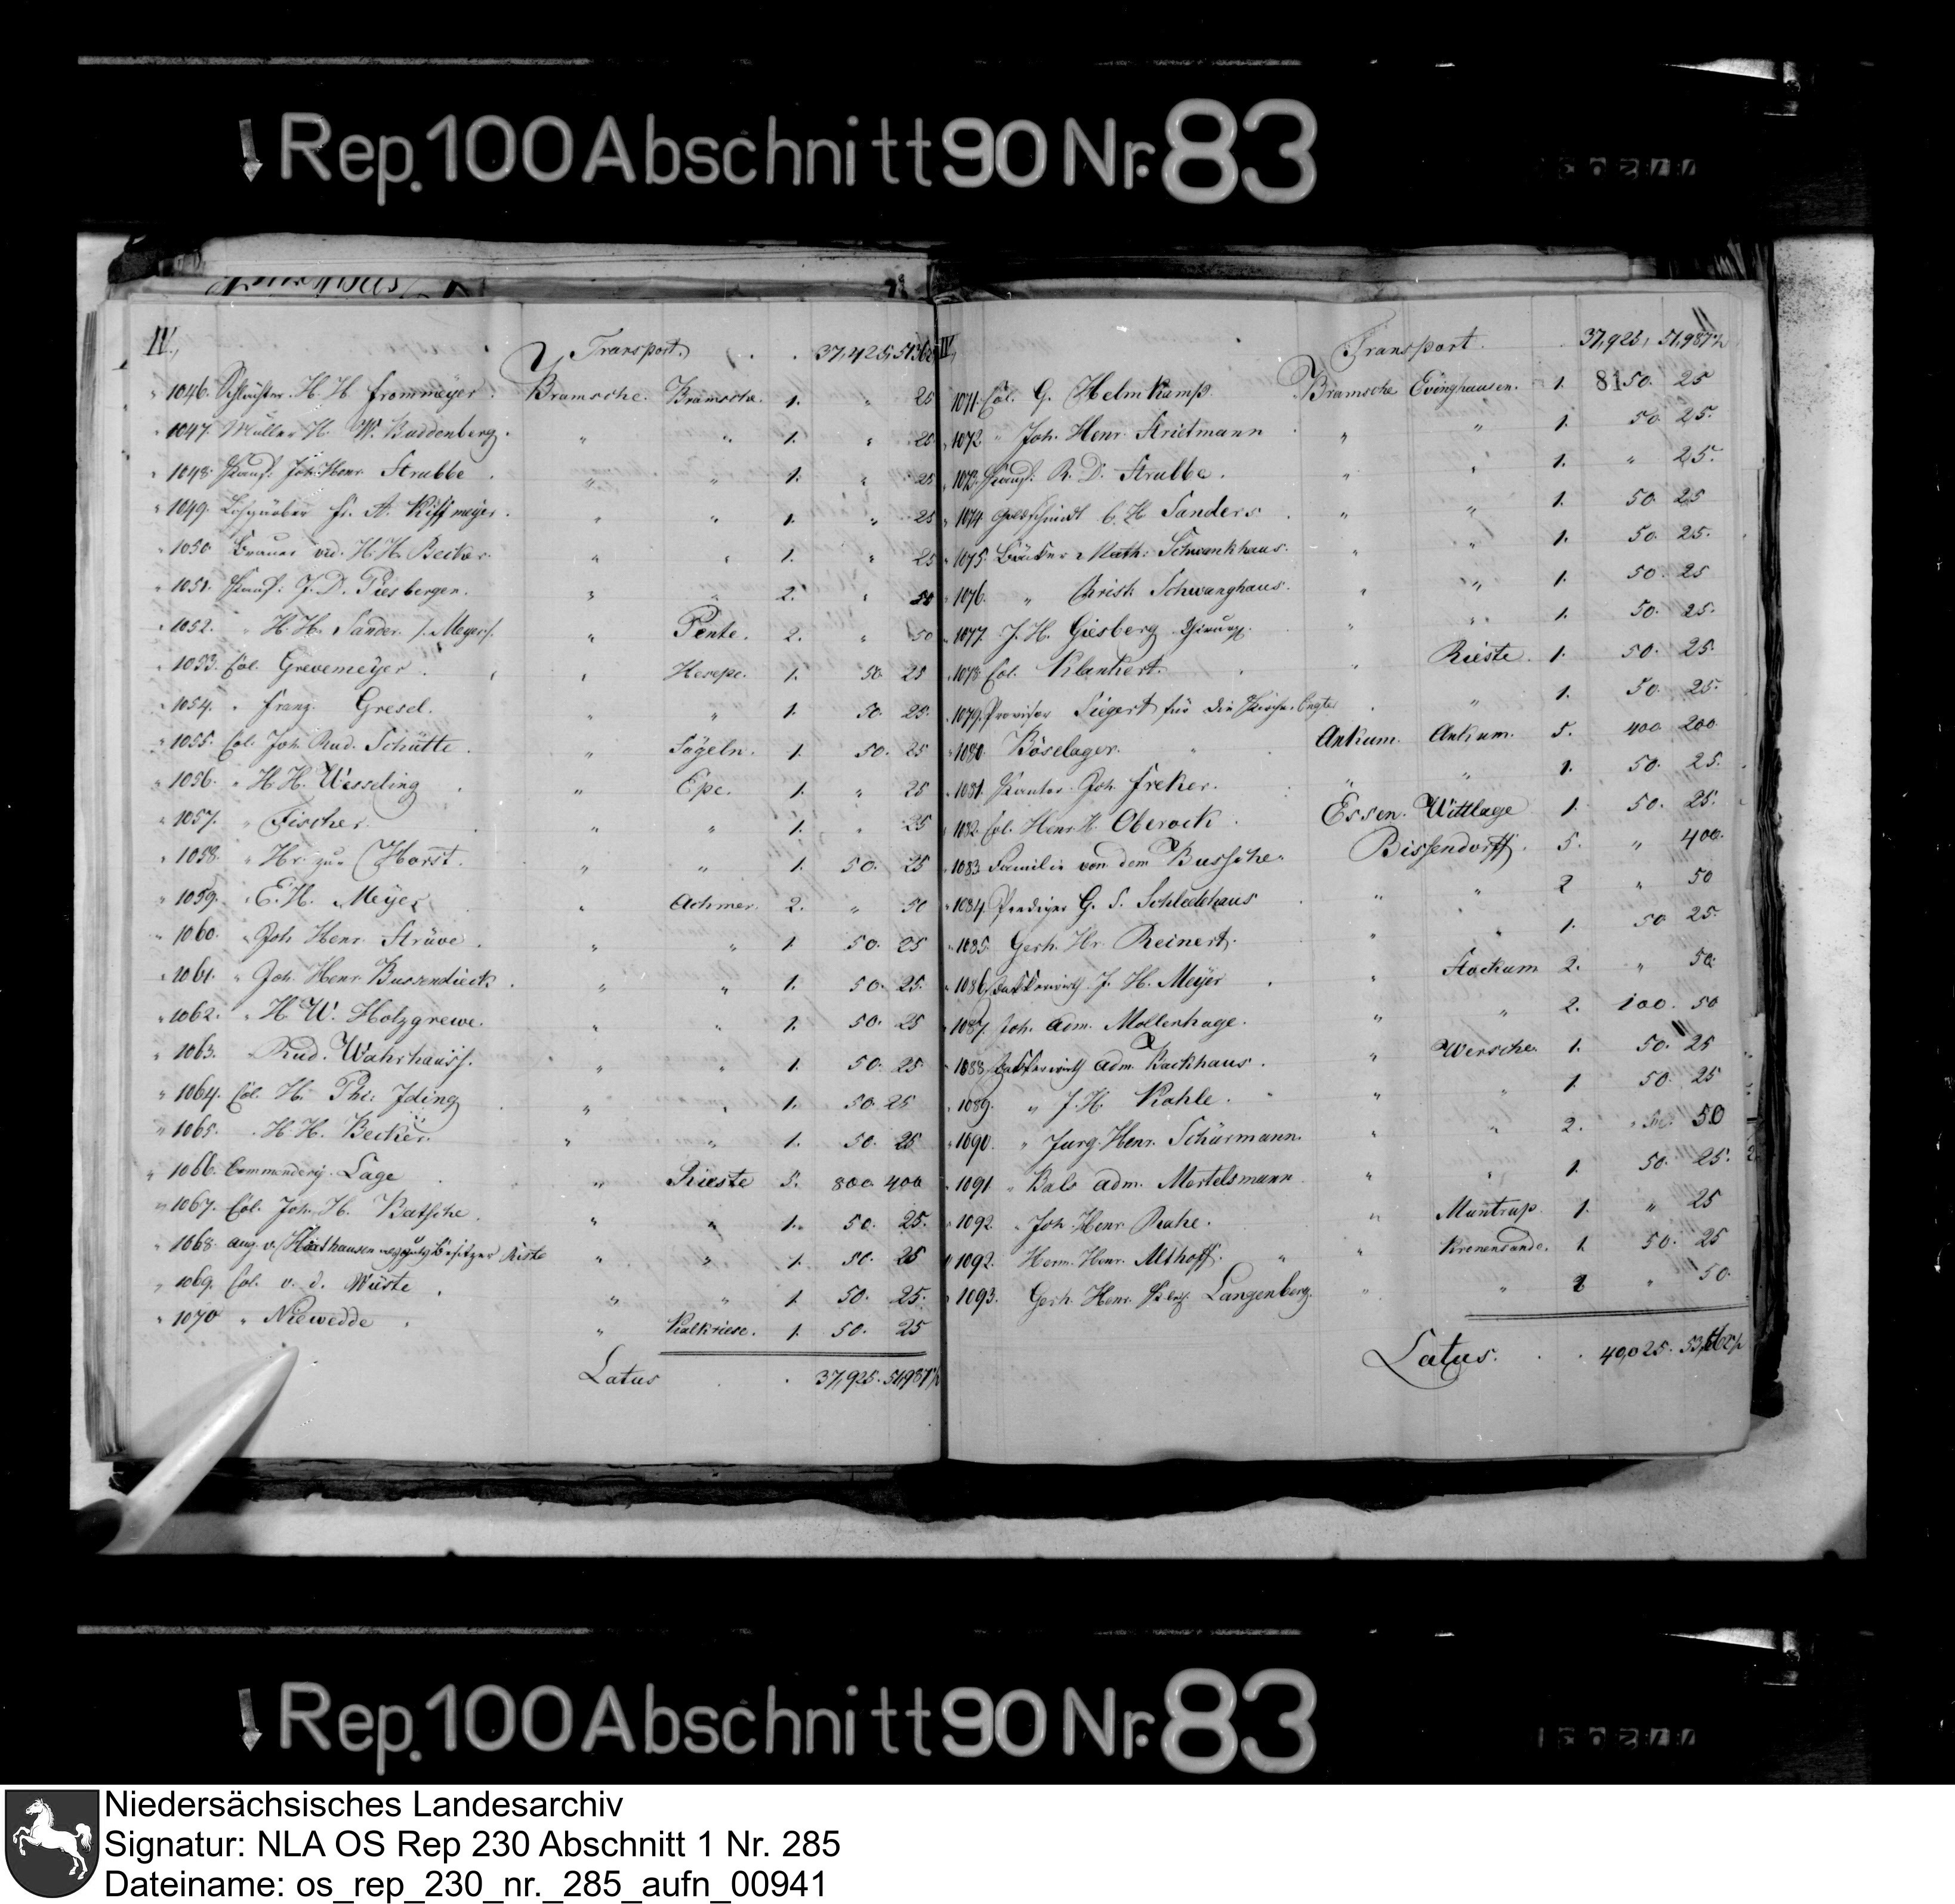 Rep. 100 Abschnitt 90 Nr. 83
IV. Transport. 37,425.
" 1046. Schlächter H. H. Frommeyer. Bramsche. Bramsche. 1. " 25
" 1047. Müller H. W. Buddenberg. " " 1. " 25
" 1048. Kauf: Joh. Henr. Strubbe. " " 1. " 25
" 1049. Lohgärber Fr. A. Kiffmeyer. " " 1. " 25
" 1050. Brauer H. H. Becker. " " 1. " 25
" 1051. Kauf: J. D. Piesbergen. " " 2. " 50
" 1052. " H. H. Sander " Pente. 2. " 50
" 1053. Col. Grevemeyer. " Hesepe. 1. 50. 25
" 1054. " Franz Gresel. " " 1. 50. 25.
" 1055. Col. Joh. Rud. Schütte. " Sögeln. 1. 50. 25
" 1056. " H. H. Wesseling " Epe. 1. " 25
" 1057. " Fischer. " " 1. " 25
" 1058. " Hr. zur Horst. " " 1. 50. 25
" 1059. " E. H. Meyer " Achmer. 2. " 50
" 1060. " Joh. Henr. Strüve. " " 1 50. 25
" 1061. " Joh. Henr. Bussendieck. " " 1. 50. 25.
" 1062. " H. W. Holzgrewe. " " 1. 50. 25
" 1063. Rud. Wahrhauss. " " 1. 50. 25
" 1064. Col. H. Ph: Iding " " 1. 50. 25
" 1065. " H. H. Becker. " " 1. 50. 25
" 1066. Commenderij Lage " Rieste 5. 800 400
" 1067. Col. Joh. H. Batsche. " " 1. 50. 25.
" 1068. Aug. v. Besitzer Riste " " 1. 50. 25
" 1069. Col. v. d. Wüste. " " 1. 50. 25.
" 1070 " Niewedde. " Kalkriese. 1. 50. 25
Latus 37,925. 51,987½
IV. Transport. 37,925. 51,987½
81
" 1071. Col. G. Helmkamp. Bramsche Evinghausen. 1. 50. 25
" 1072. " Joh. Henr. Strietmann " " 1. 50. 25.
" 1073. Kauf: R. D. Strubbe. " " 1. " 25.
" 1074. Goldschmidt C. H. Sanders " " 1. 50. 25
" 1075. Bäcker Math: Schwankhaus. " " 1. 50. 25.
" 1076. " Christ: Schwanghaus. " " 1. 50. 25
" 1077. J. H. Giesberg Chirurg. " " 1. 50. 25.
" 1078. Col. Klankert. " Rieste. 1. 50. 25.
" 1079. Provisor Siegert für die Kirche Engter " " 1. 50. 25.
" 1080. Böselager. Ankum. Ankum. 5. 400 200
" 1081. Kantor Joh. Freker. " " 1. 50. 25.
" 1082. Col. Henr. H. Oberock. Essen. Wittlage 1. 50. 25.
" 1083. Familie von dem Bussche. Bissendorff. 5. " 400.
" 1084. Prediger G. S. Schledehaus " " 2 " 50
" 1085. Gerh. Hr. Reinert. " " 1. 50 25.
" 1086. J. H. Meyer " Stockum 2. " 50.
" 1087. Joh. Adm. Mollenhage. " " 2. 100. 50
" 1088. Adm. Backhaus. " Wersche. 1. 50. 25
" 1089. " J. H. Kahle. " " 1. 50. 25
" 1090. " Jurg. Henr. Schürmann. " " 2. 50
" 1091. " Bals Adm. Mertelsmann " " 1. 50. 25.
" 1092. " Joh. Henr. Rahe. " Muntrup. 1. " 25
" 1092. Herm. Henr. Althoff. " " Kronensunde. 1. 50. 25
" 1093. Gerh. Henr. Langenberg. " " 2 " 50.
Latus. 40,025.
Rep. 100 Abschnitt 90 Nr. 83
Niedersächsisches Landesarchiv
Signatur: NLA OS Rep 230 Abschnitt 1 Nr. 285
Dateiname: os_rep_230_nr._285_aufn_00941